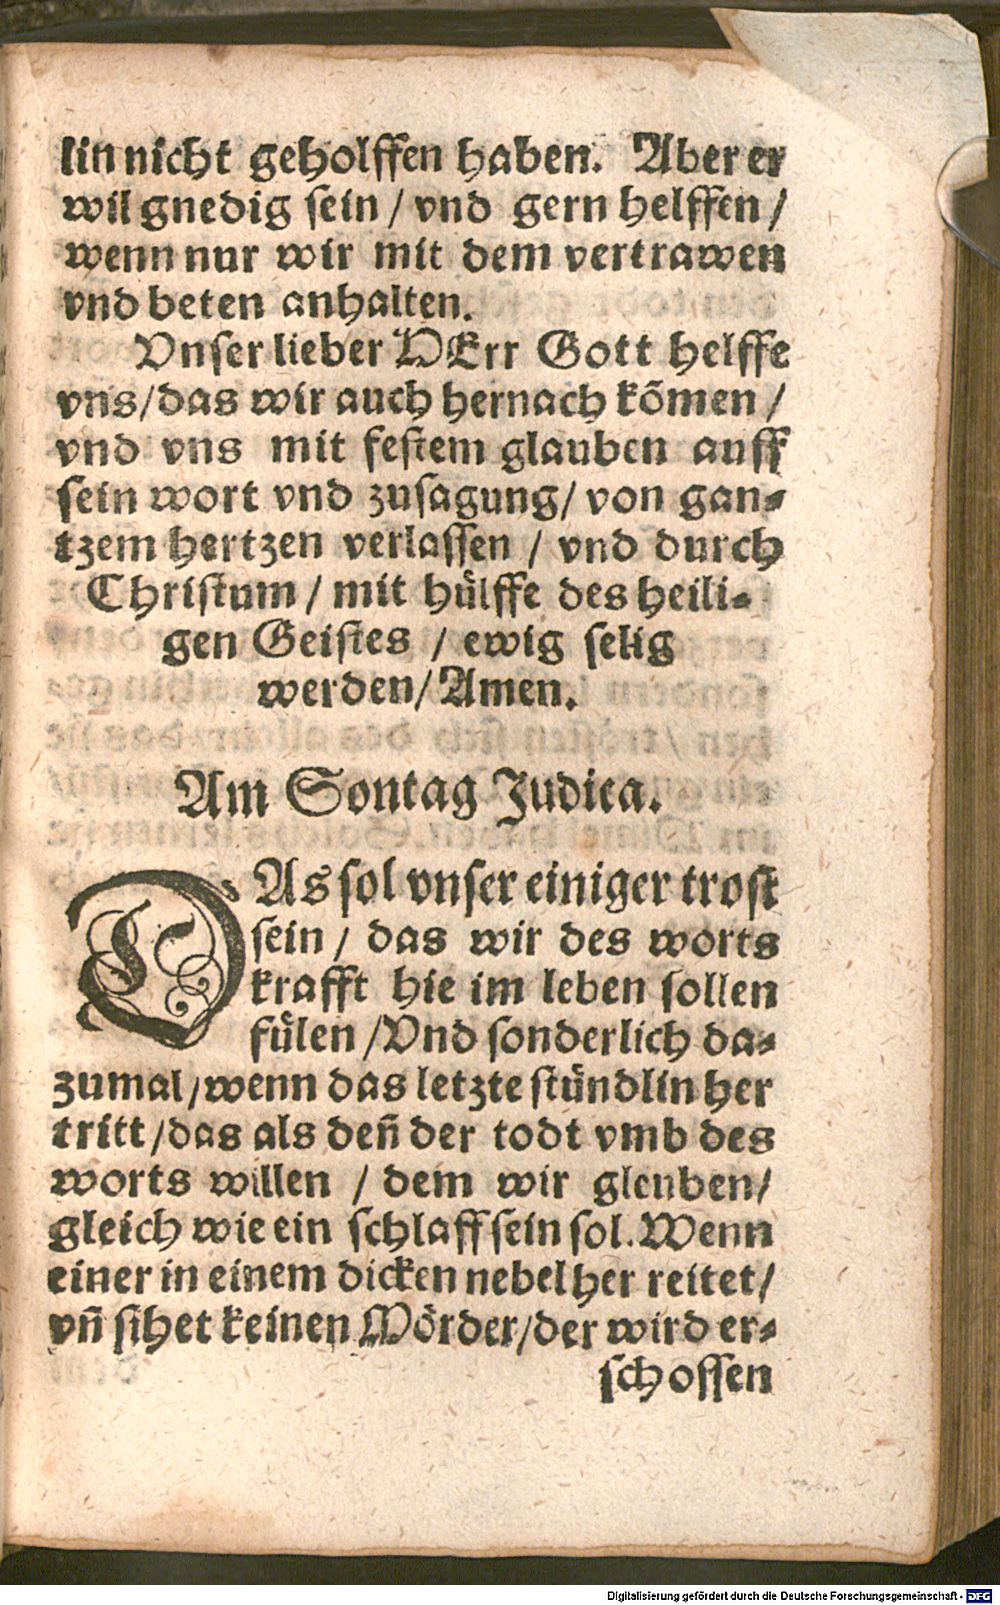 lin nicht geholffen haben. Aber er
wil gnedig sein / vnd gern helffen /
wenn nur wir mit dem vertrawen
vnd beten anhalten.
Vnser lieber HErr Gott helffe
vns / das wir auch hernach kõmen /
vnd vns mit festem glauben auff
sein wort vnd zusagung / von gan-
tzem hertzen verlassen / vnd durch
Christum / mit hülffe des heili-
gen Geistes / ewig selig
werden / Amen.
Am Sontag Judica.
DAs sol vnser einiger trost
sein / das wir des worts
krafft hie im leben sollen
fülen / Vnd sonderlich da-
zumal / wenn das letzte stündlin her
tritt / das als deñ der todt vmb des
worts willen / dem wir gleuben /
gleich wie ein schlaff sein sol. Wenn
einer in einem dicken nebel her reitet /
vñ sihet keinen Mörder / der wird er-
schossen
Digitalisierung gefördert durch die Deutsche Forschungsgemeinschaft - DFG